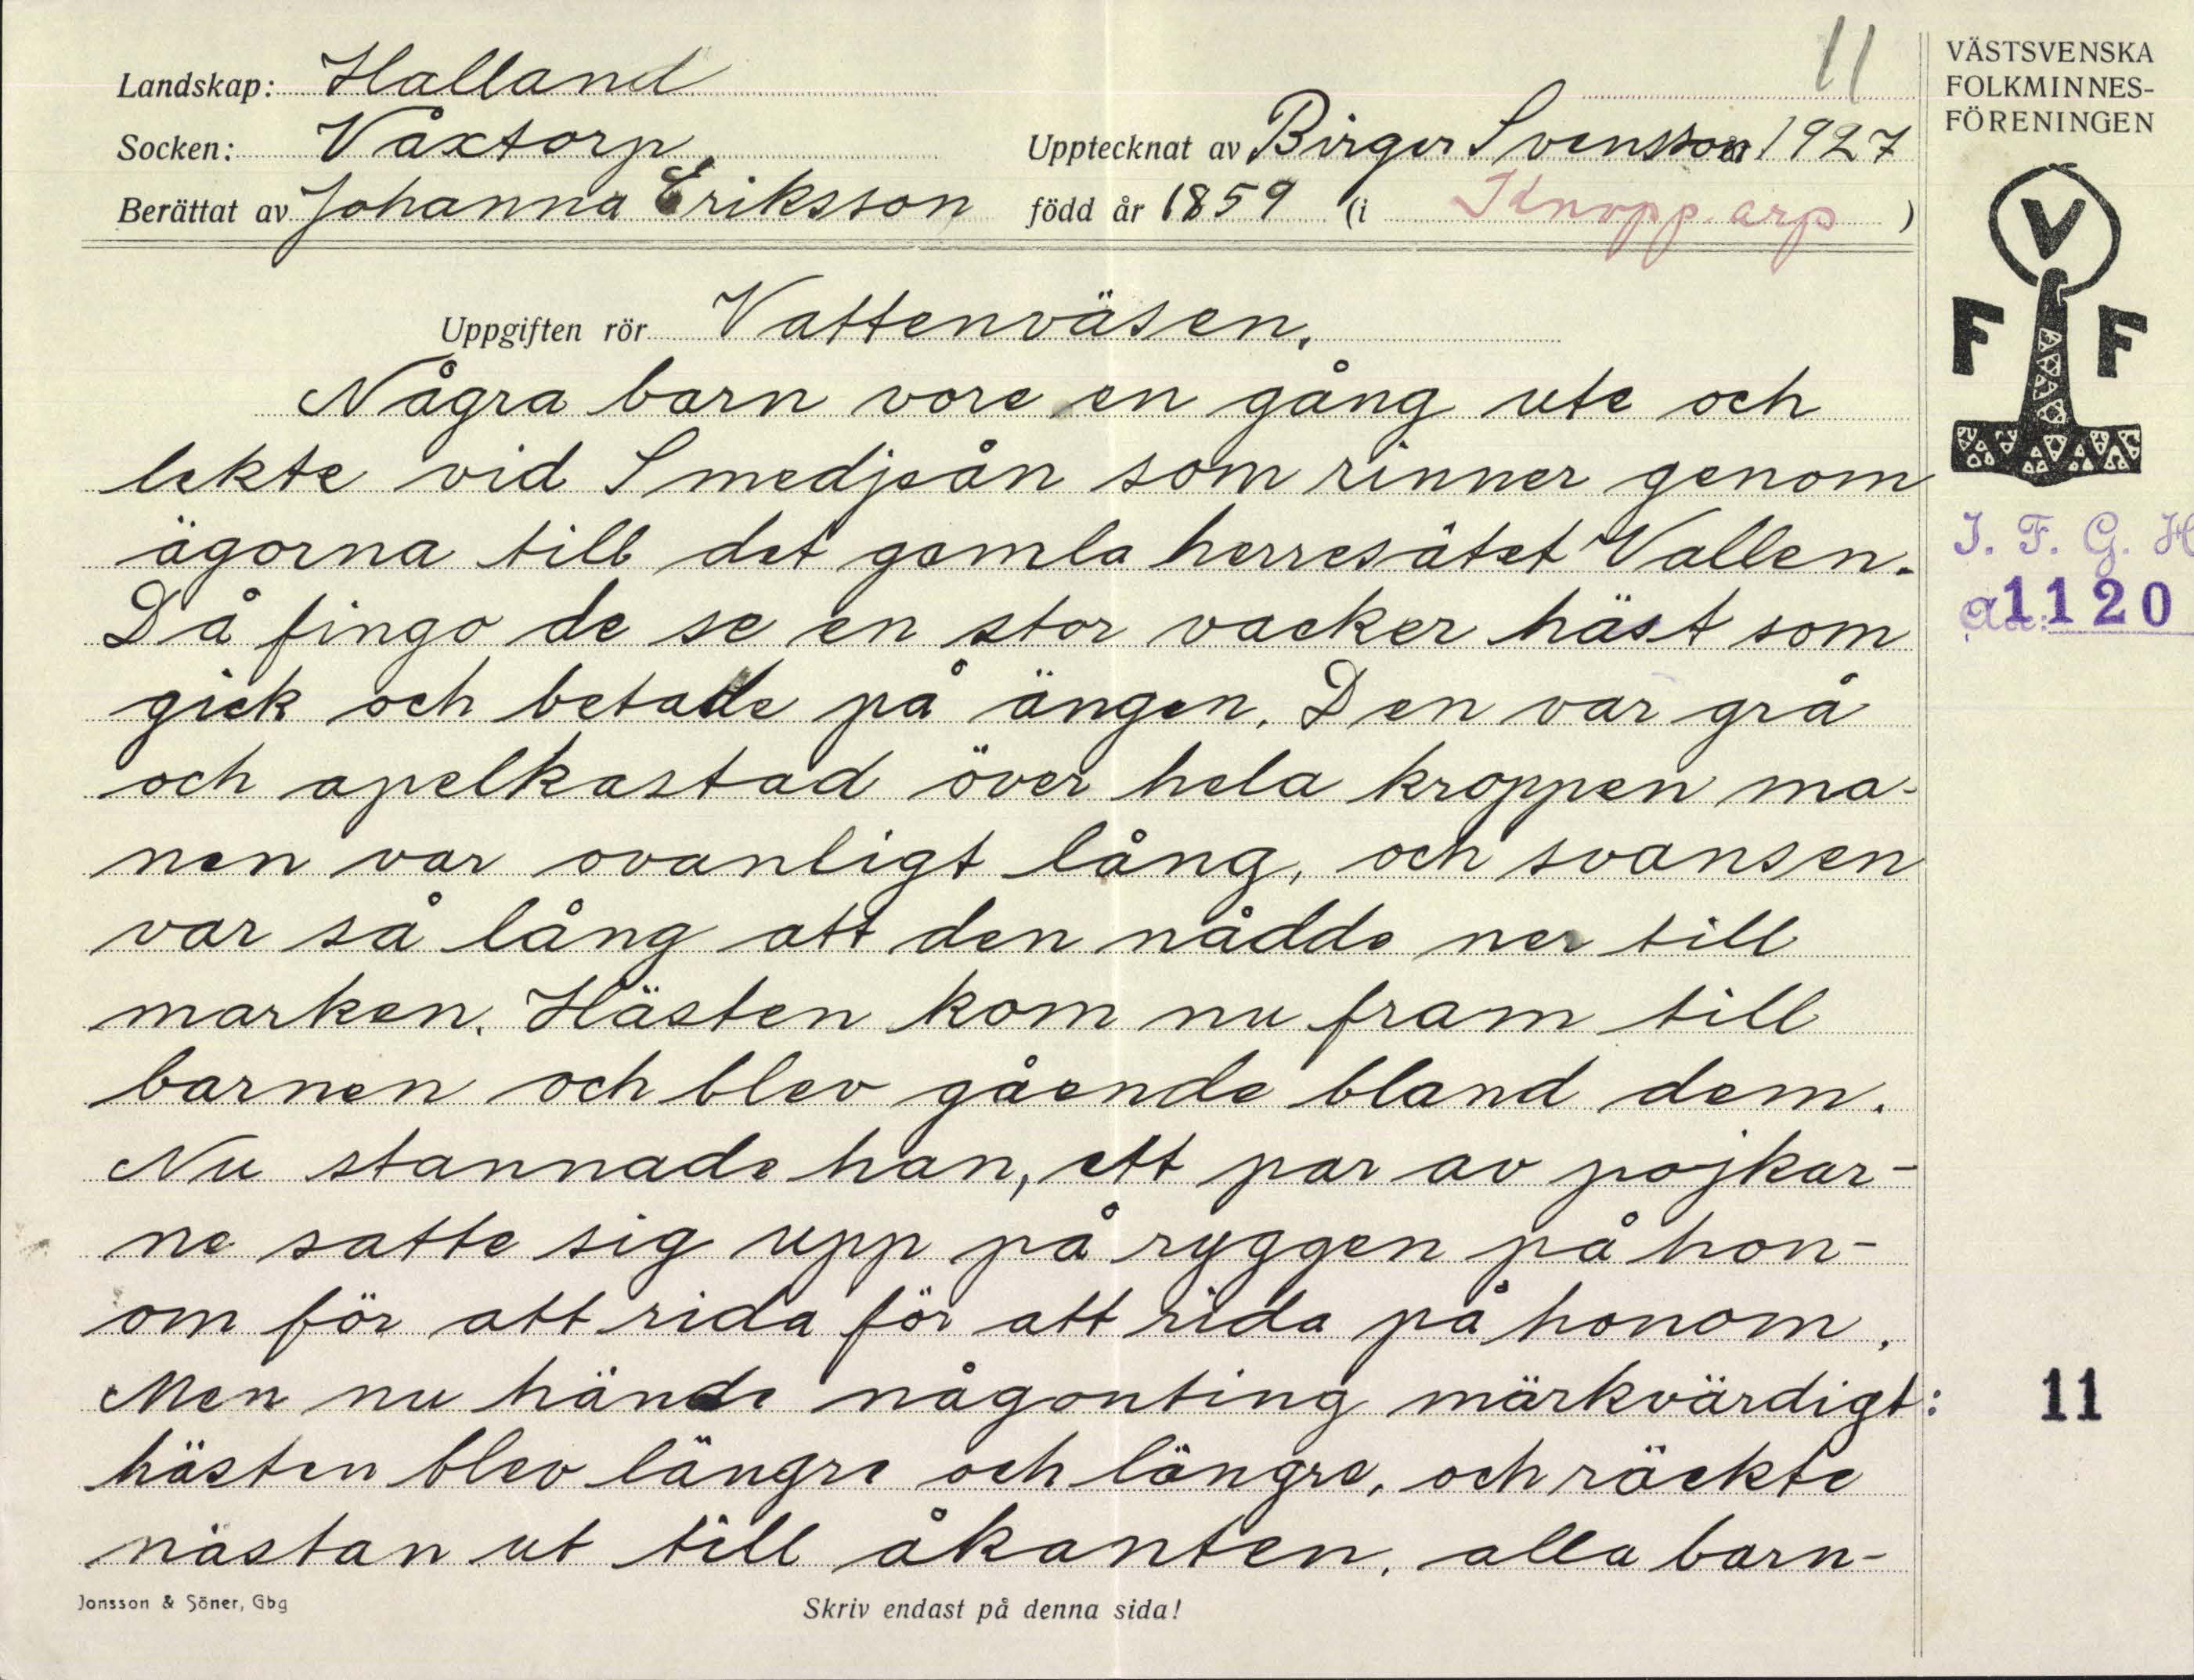 11
Landskap: Halland
Socken: Våxtorp
Upptecknat av Birger Svensson 1927
Berättat av Johanna Eriksson
född år 1859 (i Knopparp)
VÄSTSVENSKA
FOLKMINNES-
FÖRENINGEN
V
F F
I. F. G. H
a 1120
Uppgiften rör Vattenväsen.
Några barn vore en gång ute och
lekte vid Smedjeån som rinner genom
ägorna till det gamla herresätet Vallen.
Då fingo de se en stor vacker häst som
gick och betade på ängen. Den var grå
och apelkastad över hela kroppen ma-
nen var ovanligt lång, och svansen
var så lång att den nådde ner till
marken. Hästen kom nu fram till
barnen och blev gående bland dem.
Nu stannade han, ett par av pojkar-
ne satte sig upp på ryggen på hon-
om för att rida för att rida på honom.
Men nu hände någonting märkvärdigt:
hästen blev längre och längre, och räckte
nästan ut till åkanten, alla barn-
11
Jonsson & Söner, Gbg
Skriv endast på denna sida!